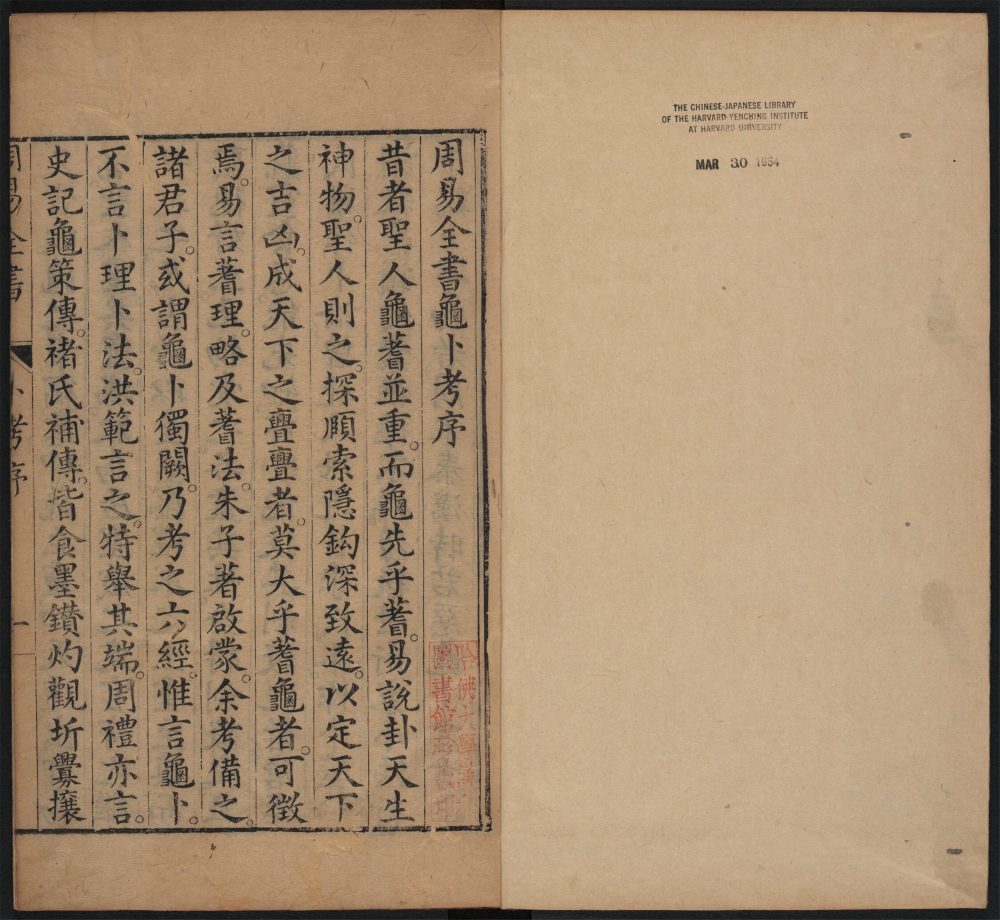 THE CHINESE-JAPANESE LIBRARY
OF THE HARVARD-YENCHING INSTITUTE
AT HARVARD UNIVERSITY
MAR 30 1954
周易全書龜卜考序
昔者聖人龜蓍並重。而龜先乎蓍。易說卦天生
神物。聖人則之。探賾索隱鈎深致遠。以定天下
之吉凶。成天下之亹亹者。莫大乎蓍龜者。可徵
焉。易言蓍理。略及蓍法。朱子著啟蒙。余考備之
諸君子。或謂龜卜獨闕。乃考之六經。惟言龜卜。
不言卜理卜法。洪範言之。特舉其端。周禮亦言。
史記龜策傳。褚氏補傳。皆食墨鑚灼觀坼釁攘
周易全書 卜考序 一
哈佛大學
圖書館珍